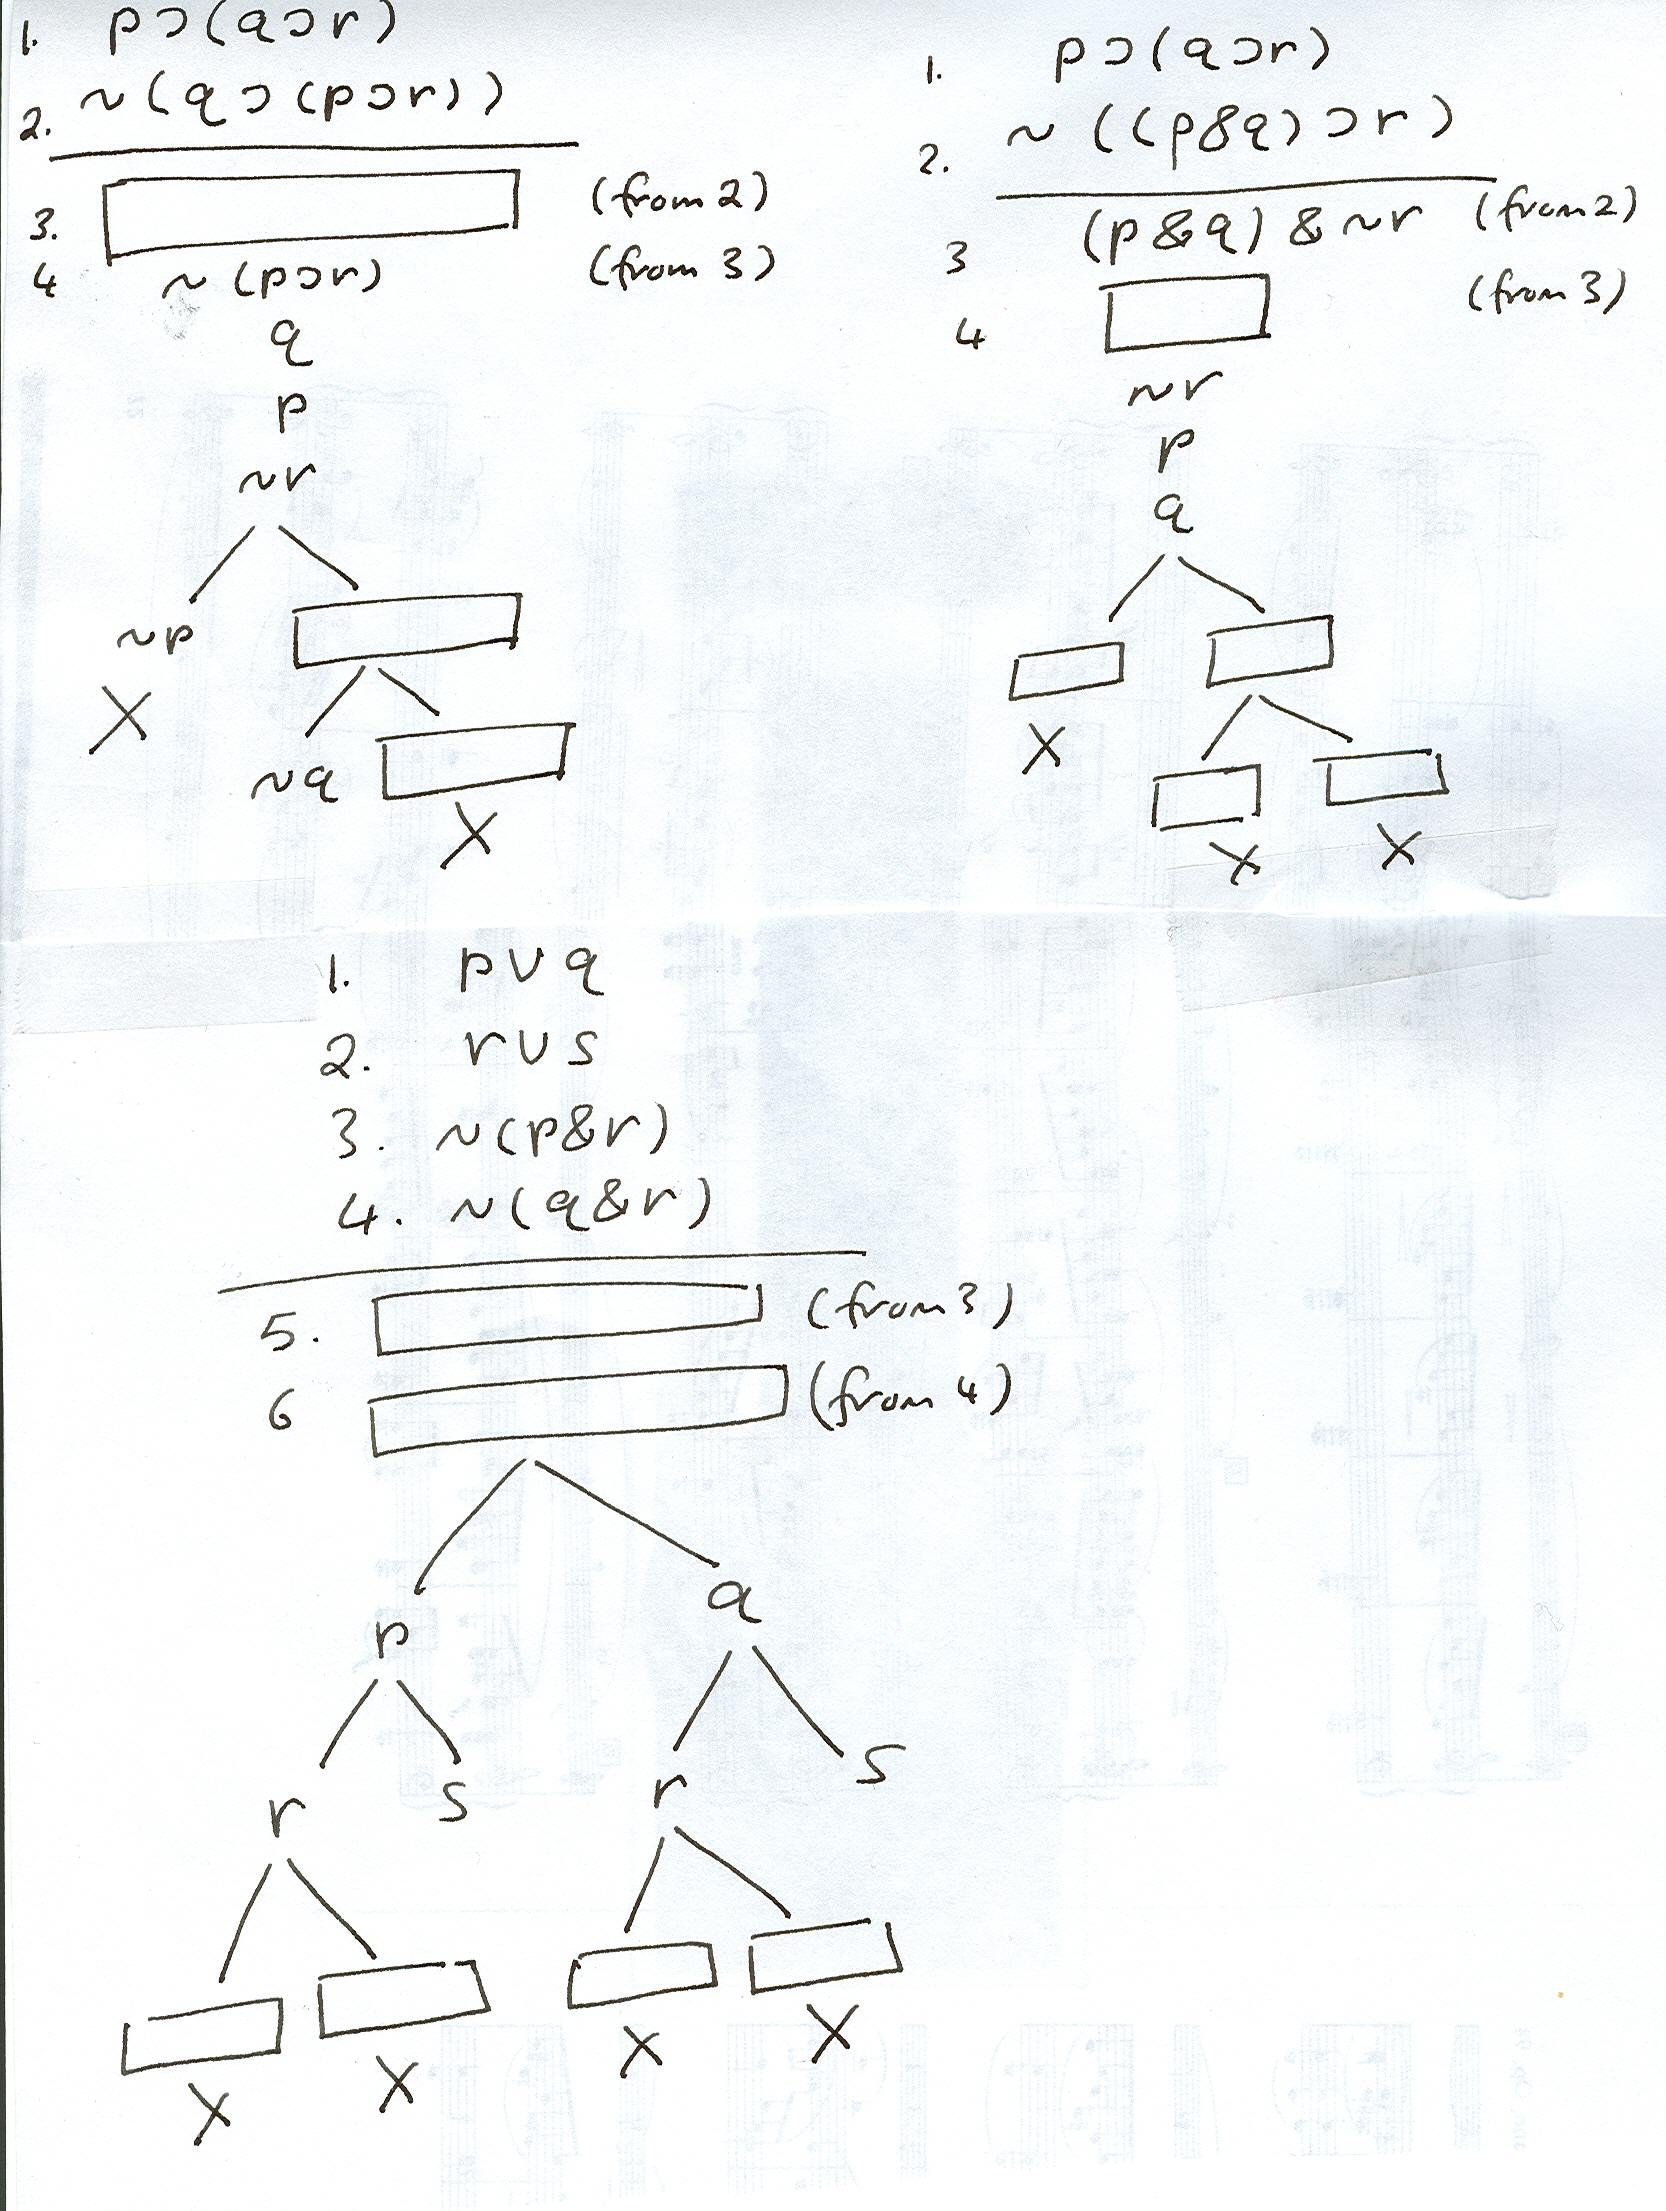 1. p⊃(q⊃r)
2. ~(q⊃(p⊃r))
3. (from 2)
4 ~(p⊃r) (from 3)
q
p
~r
~p
X
~q
X
1. p⊃(q⊃r)
2. ~((p&q)⊃r)
3 (p&q)&~r (from 2)
4 (from 3)
~r
p
q
X
X X
1. p∨q
2. r∨s
3. ~(p&r)
4. ~(q&r)
5. (from 3)
6 (from 4)
p q
r s r s
X X X X